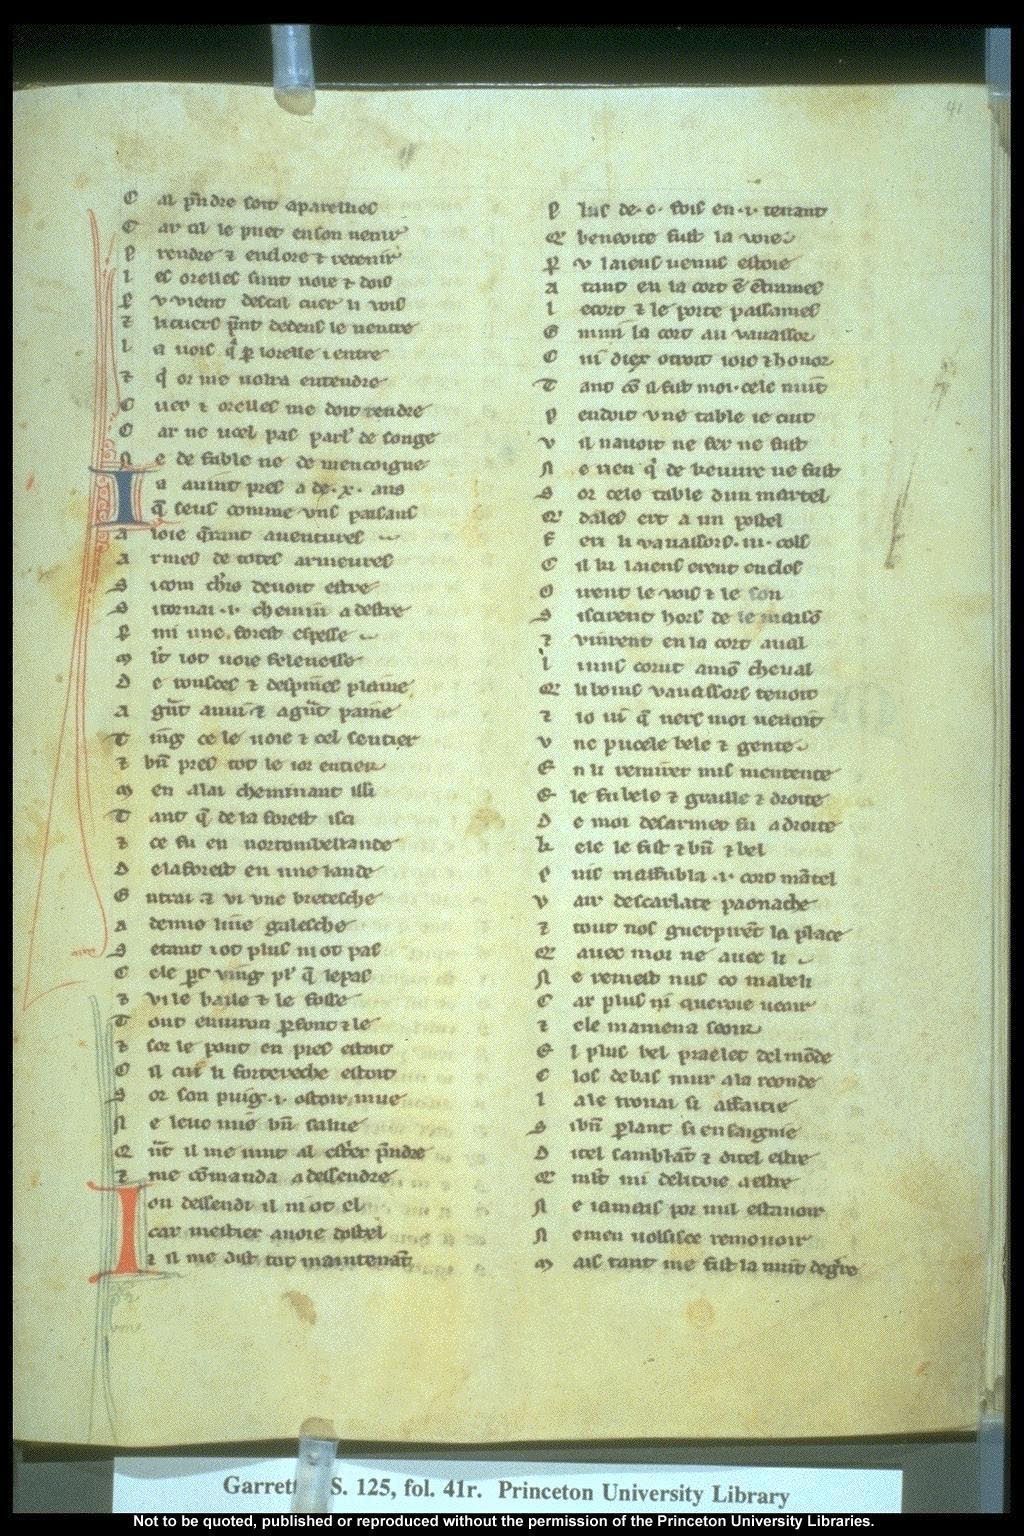 41
C al pñdre soit aparellies
C ar cil le puet enson venir
P rendre ⁊ enclore ⁊ retenir
L es orelles sunt voie ⁊ dois
P v vient descal cuer li vois
⁊ licuers p̃nt dedens le ventre
L a vois q̃ ꝑ lorelle i entre
⁊ q̃ or me volra entendre
C uer ⁊ orelles me doit rendre
C ar ne voel pas parl' de songe
N e de fable ne de mencoigne
I a avint pres a de .x. ans
q̃ seus comme vns paisans
A loie q̃rant aventures
A rmes de totes armeures
S icom chr̃s devoit estre
S itornai .i. chemin a destre
P mi une forest espesse
M lt̃ iot voie felenesse
D e ronsces ⁊ despines plaine
A gñt anui ⁊ agñt paine
T ing ce le voie ⁊ cel sentier
⁊ bñ pres tot le ior entier
M en alai cheminant issi
T ant q̃ de la forest issi
⁊ ce fu en nortombellande
D elaforest en une lande
E ntrai ⁊ vi vne bretesche
A demie liue galesche
S etant iot plus niot pas
C ele ꝑt ving pl' q̃ lepas
⁊ vi le baile ⁊ le fosse
T out environ ꝑfont ⁊ le
⁊ sor le pont en pies estoit
C il cui li fortereche estoit
S or son puig .i. ostoir mue
N e leuc mie bñ salue
Q ñt il me vint al estrer p̃ndre
⁊ me cõmanda a dessendre
I ou dessendi il ni ot el
car mestier avoie dostel
⁊ il me dist tot maintenãt
P lus de .c. fois en .i. tenant
Q beneoite fust la voie
P v laiens venus estoie
A tant en la cort ẽ ẽtrames
L econt ⁊ le porte passames
E nmi la cort au vavassor
C ui diex otroit ioie ⁊ honor
T ant cõ il fist moi cele nuit
P endoit vne table ie cuit
V il navoit ne fer ne fust
N e rien q̃ de keuvre ne fust
S or cele table dun martel
Q dales ert a un postel
F eri li vavassors .iii. cols
C il ki laiens erent enclos
O irent le vois ⁊ le son
S issirent hors de le maisõ
⁊ vinrent en la cort aval
L iuns corut amõ cheval
Q libons vavassors tenoit
⁊ io vi q̃ vers moi venoit
V ne pucele bele ⁊ gente
E n li remirer mis mentente
E le fu bele ⁊ graille ⁊ droite
D e moi desarmer fu adroite
K ele le fist ⁊ bñ ⁊ bel
P uis maffubla .i. cort mãtel
V air descarlate paonache
⁊ tout nos guerpirẽt la place
Q avec moi ne avec li
N e remest nus co mabeli
C ar plus ni queroie veoir
⁊ ele mamena seoir
E l plus bel praelet del mõde
C los debas mur ala reonde
L ale trovai si affaitie
S ibñ ꝑlant si ensaignie
D itel samblãt ⁊ ditel estre
Q mlt̃ mi delitoie a estre
N e iamais por nul estavoir
N emen volsisce remouvoir
M ais tant me fist la nuit degre
Garrett S. 125, fol. 41r. Princeton University Library
Not to be quoted, published or reproduced without the permission of the Princeton University Libraries.